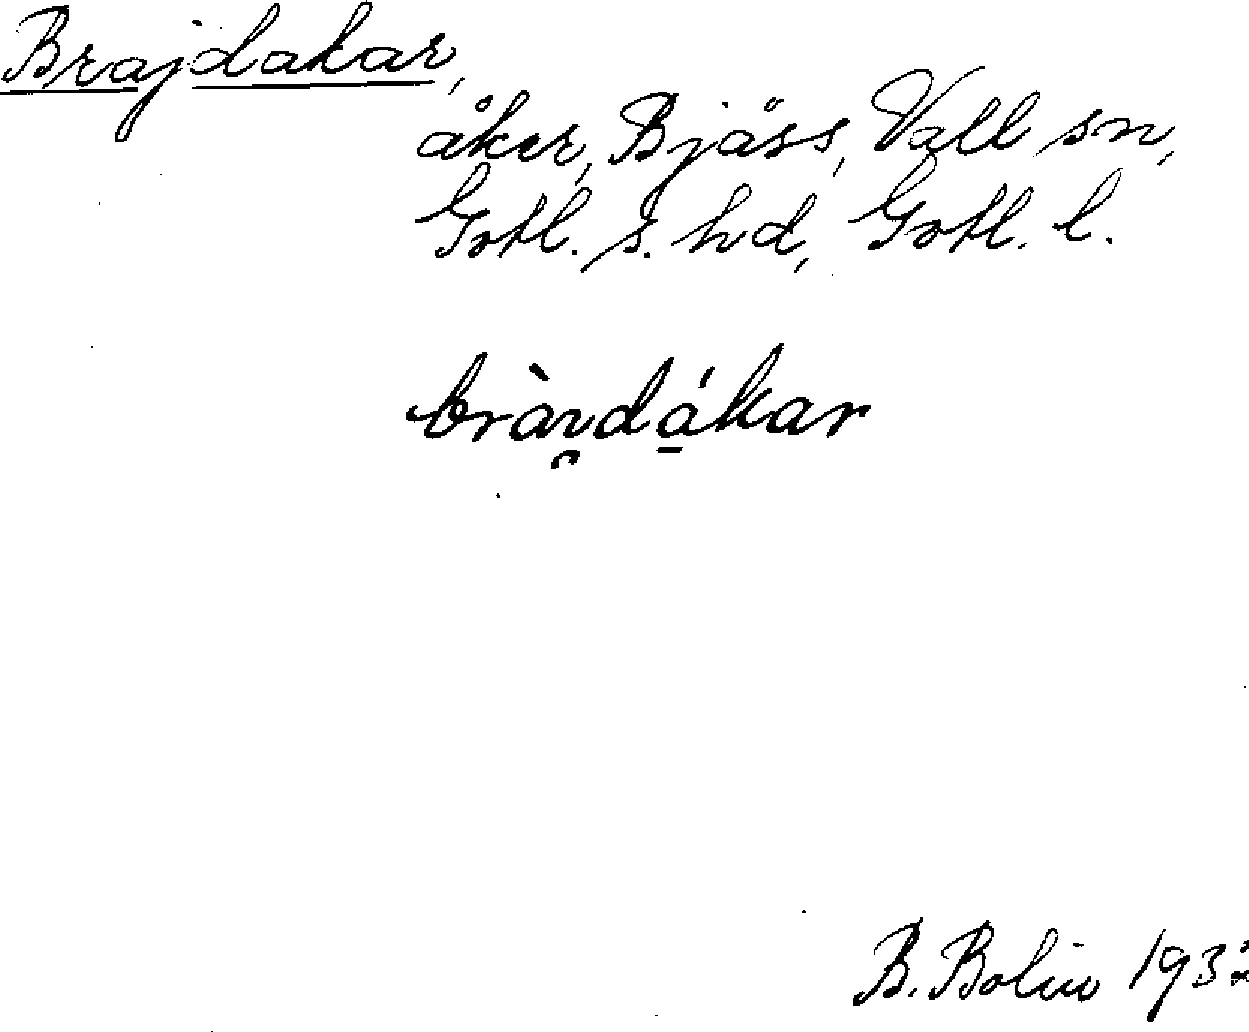 Brajdakar,
åker, Bjäss, Vall sn,
Gotl. s. hd, Gotl. l.
bràɪ̯dá̱kar
B. Bolin 1932